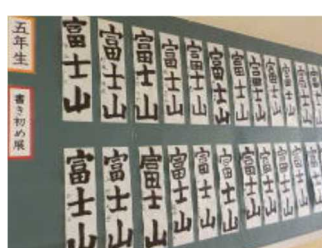 五年生
書き初め展
富士山
富士山
富士山
富士山
富士山
富士山
富士山
富士山
富士山
富士山
富士山
富士山
富士山
富士山
富士山
富士山
富士山
富士山
富士山
富士山
富士山
富士山